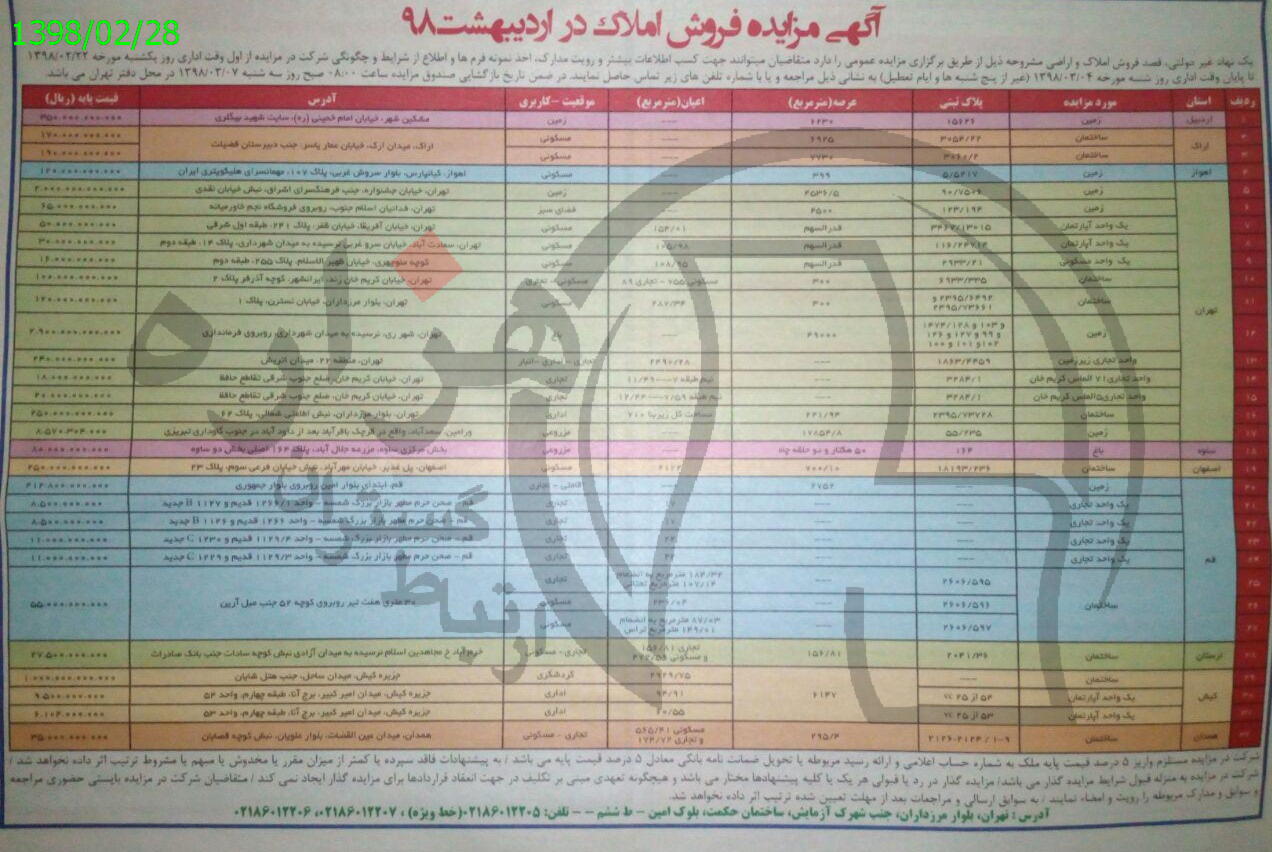 1398/02/28
آگهی مزایده فروش املاک در اردیبهشت ۹۸
یک نهاد غیر دولتی، قصد فروش املاک و اراضی مشروحه ذیل از طریق برگزاری مزایده عمومی را دارد متقاضیان میتوانند جهت کسب اطلاعات بیشتر و رویت مدارک، اخذ نمونه فرم ها و اطلاع از شرایط و چگونگی شرکت در مزایده از اول وقت اداری روز یکشنبه مورخه ۱۳۹۸/۰۲/۲۲
تا پایان وقت اداری روز شنبه مورخه ۱۳۹۸/۰۳/۰۴ (غیر از پنج شنبه ها و ایام تعطیل) به نشانی ذیل مراجعه و یا با شماره تلفن های زیر تماس حاصل نمایند. در ضمن تاریخ بازگشایی صندوق مزایده ساعت ۰۸:۰۰ صبح روز سه شنبه ۱۳۹۸/۰۳/۰۷ در محل دفتر تهران می باشد.
ردیف استان مورد مزایده پلاک ثبتی عرصه(مترمربع) اعیان(مترمربع) موقعیت - کاربری آدرس قیمت پایه (ریال)
اردبیل زمین ۱۵۶۲۶ ۶۲۳۰ ---- زمین مشکین شهر، خیابان امام خمینی (ره)، سایت شهید بیگلری ۳۵۰.۰۰۰.۰۰۰.۰۰۰
اراک ساختمان ۶۹۲۵ ---- مسکونی اراک، میدان ارک، خیابان عمار یاسر، جنب دبیرستان فضیلت ۱۷۰.۰۰۰.۰۰۰.۰۰۰
ساختمان ۷۷۳۰ ---- مسکونی ۱۹۰.۰۰۰.۰۰۰.۰۰۰
اهواز زمین ۳۹۹ مسکونی اهواز، کیانپارس، بلوار سروش غربی، پلاک ۱۰۷، مهمانسرای هلیکوپتری ایران ۱۲۰.۰۰۰.۰۰۰.۰۰۰
تهران
زمین ۲۵۳۶/۵ زمین تهران، خیابان جشنواره، جنب فرهنگسرای اشراق، نبش خیابان نقدی ۲.۰۰۰.۰۰۰.۰۰۰.۰۰۰
زمین ۱۲۳/۱۹۴ ۲۵۰۰ فضای سبز تهران، فدائیان اسلام جنوب، روبروی فروشگاه نجم خاورمیانه ۶۵.۰۰۰.۰۰۰.۰۰۰
یک واحد آپارتمان ۳۴۶۷/۱۳۰۱۵ قدرالسهم ۱۵۴/۰۱ مسکونی تهران، خیابان آفریقا، خیابان ظفر، پلاک ۲۴۱، طبقه اول شرقی ۵۰.۰۰۰.۰۰۰.۰۰۰
یک واحد آپارتمان قدرالسهم ۱۰۵/۹۸ مسکونی تهران، سعادت آباد، خیابان سرو غربی نرسیده به میدان شهرداری، پلاک ۱۴، طبقه دوم ۳۰.۰۰۰.۰۰۰.۰۰۰
یک واحد مسکونی ۲۹۳۳/۲۱ قدرالسهم ۱۰۸/۹۵ مسکونی کوچه منوچهری، خیابان ظهیر الاسلام، پلاک ۲۵۵، طبقه دوم ۱۶.۰۰۰.۰۰۰.۰۰۰
ساختمان ۶۹۳۳/۳۳۵ ۳۰۰ مسکونی ۷۵۵ - تجاری ۸۹ مسکونی - تجاری تهران، خیابان کریم خان زند، ایرانشهر، کوچه آذرفر پلاک ۲ ۱۰۰.۰۰۰.۰۰۰.۰۰۰
ساختمان ۲۳۹۵/۶۴۹۲ و ۲۳۹۵/۷۳۶۶۱ ۳۰۰ ۲۸۷/۳۴ مسکونی تهران، بلوار مرزداران، خیابان نسترن، پلاک ۱ ۱۲۰.۰۰۰.۰۰۰.۰۰۰
زمین ۴۹۰۰۰ باغ تهران، شهر ری، نرسیده به میدان شهرداری، روبروی فرمانداری ۲.۹۰۰.۰۰۰.۰۰۰.۰۰۰
واحد تجاری زیرزمین ۱۸۶۳/۴۴۵۹ ---- ۲۴۹۰/۲۸ تجاری - اداری - انبار تهران، منطقه ۲۲، میدان اتریش ۲۴۰.۰۰۰.۰۰۰.۰۰۰
واحد تجاری ۷۱ الماس کریم خان ۳۲۸۴/۱ ---- تجاری تهران، خیابان کریم خان، ضلع جنوب شرقی تقاطع حافظ ۱۸.۰۰۰.۰۰۰.۰۰۰
واحد تجاری ۵ الماس کریم خان ۳۲۸۴/۱ ---- تجاری تهران، خیابان کریم خان، ضلع جنوب شرقی تقاطع حافظ ۲۰.۰۰۰.۰۰۰.۰۰۰
ساختمان ۲۳۹۵/۷۳۷۲۸ ۲۲۱/۹۴ مساحت کل زیربنا ۷۱۰ اداری تهران، بلوار مرزداران، نبش اطاعتی شمالی، پلاک ۶۲ ۲۵۰.۰۰۰.۰۰۰.۰۰۰
زمین ۵۵/۲۳۵ ۱۷۸۵۴/۸ مزروعی ورامین، سعدآباد، واقع در قرچک باقرآباد بعد از داود آباد در جنوب گاوداری تبریزی ۸.۵۷۰.۳۰۴.۰۰۰
ساوه باغ ۱۶۴ ۵۰ هکتار و دو حلقه چاه مزروعی بخش مرکزی ساوه، مزرعه جلال آباد، پلاک ۱۶۴ اصلی بخش دو ساوه ۸۰.۰۰۰.۰۰۰.۰۰۰
اصفهان ساختمان ۱۸۱۹۳/۲۳۶ ۷۰۰/۱۰ ۲۱۲۴ مسکونی اصفهان، پل غدیر، خیابان مهرآباد، نبش خیابان فرعی سوم، پلاک ۲۳ ۲۵۰.۰۰۰.۰۰۰.۰۰۰
قم
زمین ---- ۲۷۵۲ اقامتی - تجاری قم، ابتدای بلوار امین روبروی بلوار جمهوری ۴۱۲.۸۰۰.۰۰۰.۰۰۰
یک واحد تجاری تجاری قم - صحن حرم مطهر بازار بزرگ شمسه - واحد ۱۲۶۶/۱ قدیم و ۱۱۲۷ B جدید ۸.۵۰۰.۰۰۰.۰۰۰
یک واحد تجاری تجاری قم - صحن حرم مطهر بازار بزرگ شمسه - واحد ۱۲۶۶ قدیم و ۱۱۲۶ B جدید ۸.۵۰۰.۰۰۰.۰۰۰
یک واحد تجاری تجاری قم - صحن حرم مطهر بازار بزرگ شمسه - واحد ۱۱۲۹/۴ قدیم و ۱۲۳۰ C جدید ۱۱.۰۰۰.۰۰۰.۰۰۰
یک واحد تجاری تجاری قم - صحن حرم مطهر بازار بزرگ شمسه - واحد ۱۱۲۹/۳ قدیم و ۱۲۲۹ C جدید ۱۱.۰۰۰.۰۰۰.۰۰۰
ساختمان ۲۶۰۶/۵۹۵ ۱۸۴/۳۲ مترمربع به انضمام ۱۰۷/۱۴ مترمربع تجاری
۲۶۰۶/۵۹۶ ۲۳۶/۰۲ مسکونی ۳۰ متری هفت تیر روبروی کوچه ۵۲ جنب مبل آرین ۵۵.۰۰۰.۰۰۰.۰۰۰
۲۶۰۶/۵۹۷ ۸۷/۰۳ مترمربع به انضمام ۱۴۹/۰۱ مترمربع تراس مسکونی
لرستان ساختمان ۲۰۴۱/۳۶ ۱۵۶/۸۱ تجاری ۱۵۶/۸۱ و مسکونی تجاری - مسکونی خرم آباد خ مجاهدین اسلام نرسیده به میدان آزادی نبش کوچه سادات جنب بانک صادرات ۲۷.۵۰۰.۰۰۰.۰۰۰
کیش
ساختمان ---- ۲۹۲۹/۷۵ گردشگری جزیره کیش، میدان ساحل، جنب هتل شایان ۱.۰۰۰.۰۰۰.۰۰۰.۰۰۰
یک واحد آپارتمان ۵۲ از ۲۵ ۷c ۶۱۴۷ ۹۴/۹۱ اداری جزیره کیش، میدان امیر کبیر، برج آنا، طبقه چهارم، واحد ۵۲ ۹.۵۰۰.۰۰۰.۰۰۰
یک واحد آپارتمان ۵۳ از ۲۵ ۷c اداری جزیره کیش، میدان امیر کبیر، برج آنا، طبقه چهارم، واحد ۵۳ ۶.۱۰۴.۰۰۰.۰۰۰
همدان ساختمان ۲۹۵/۴ مسکونی ۵۶۵/۴۱ و تجاری ۱۷۴/۷۲ تجاری - مسکونی همدان، میدان عین القضات، بلوار علویان، نبش کوچه قصابان ۳۵.۰۰۰.۰۰۰.۰۰۰
شرکت در مزایده مستلزم واریز ۵ درصد قیمت پایه ملک به شماره حساب اعلامی و ارائه رسید مربوطه یا تحویل ضمانت نامه بانکی معادل ۵ درصد قیمت پایه می باشد / به پیشنهادات فاقد سپرده یا کمتر از میزان مقرر یا مخدوش یا مبهم یا مشروط ترتیب اثر داده نخواهد شد /
شرکت در مزایده به منزله قبول شرایط مزایده گذار می باشد/ مزایده گذار در رد یا قبولی هر یک یا کلیه پیشنهادها مختار می باشد و هیچگونه تعهدی مبنی بر تکلیف در جهت انعقاد قراردادها برای مزایده گذار ایجاد نمی کند / متقاضیان شرکت در مزایده بایستی حضوری مراجعه
و سوابق و مدارک مربوطه را رویت و امضاء نمایند / به سوابق ارسالی و مراجعات بعد از مهلت تعیین شده ترتیب اثر داده نخواهد شد.
آدرس : تهران، بلوار مرزداران، جنب شهرک آزمایش، ساختمان حکمت، بلوک امین - ط ششم -- - تلفن: ۰۲۱۸۶۰۱۲۲۰۵ (خط ویژه) ، ۰۲۱۸۶۰۱۲۲۰۷، ۰۲۱۸۶۰۱۲۲۰۶
هزاره
گستران
ارتباط